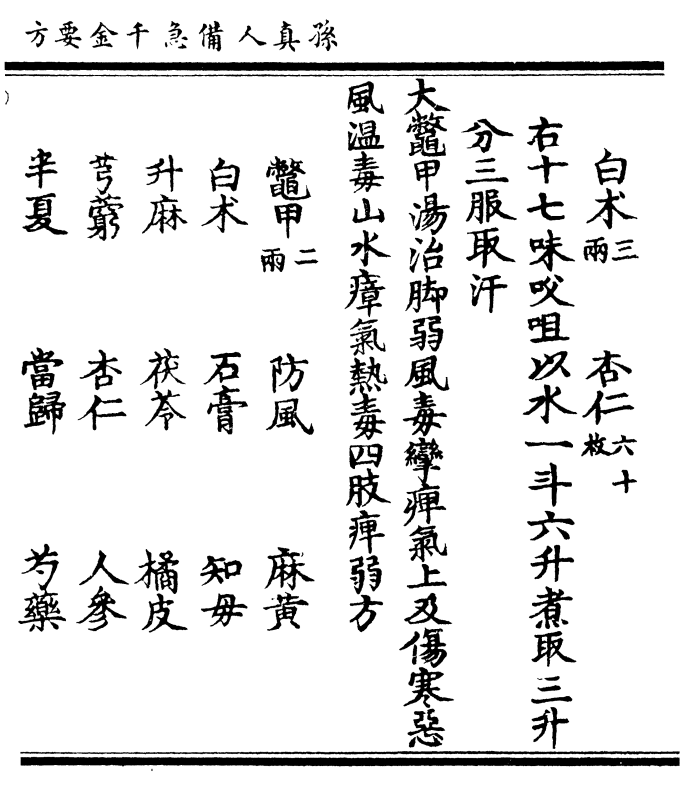 孫真人備急千金要方
白朮三兩 杏仁六十枚
右十七味㕮咀以水一斗六升煮取三升
分三服取汗
大鼈甲湯治脚弱風毒攣痺氣上及傷寒惡
風温毒山水瘴氣熱毒四肢痺弱方
鼈甲二兩 防風 麻黄
白朮 石膏 知毋
升麻 茯苓 橘皮
芎藭 杏仁 人參
半夏 當歸 芍藥